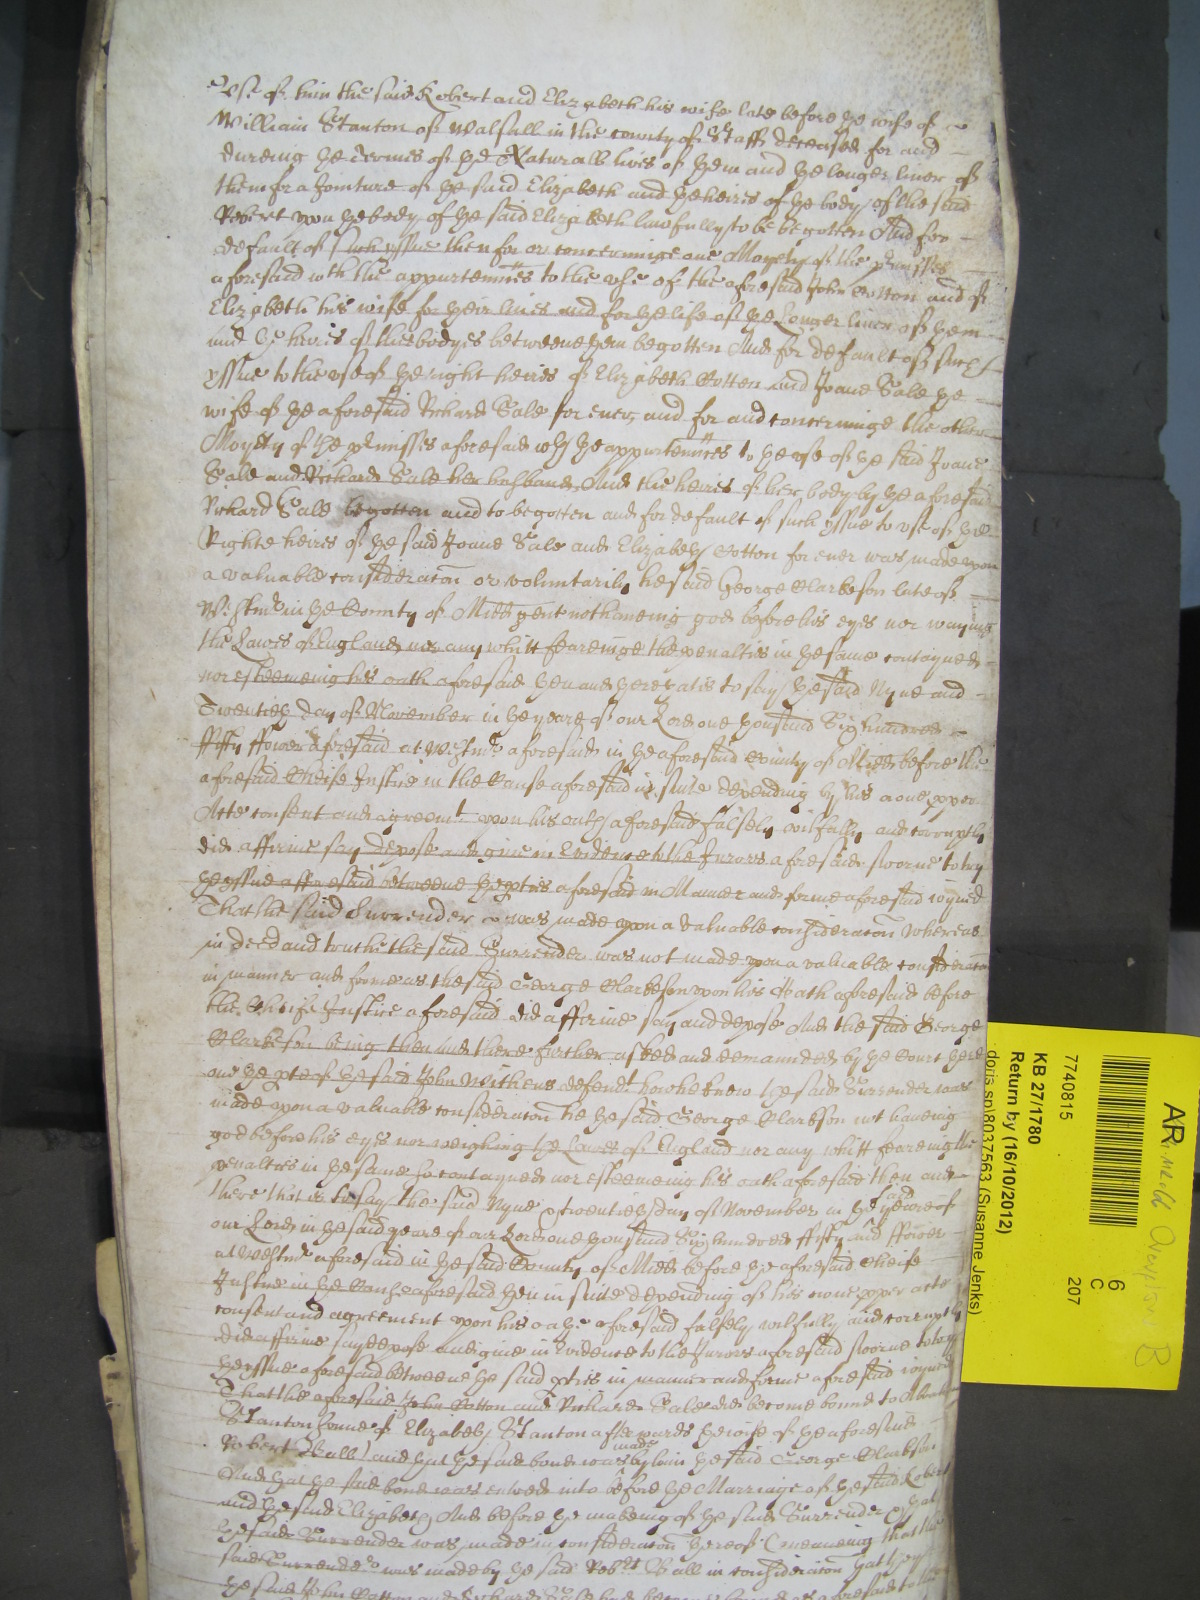 vse of him the said Robert and Elizabeth his wife late before ye wife of
William Stanton of Walsall in the county of Staff deceased for and
dureing ye termes of ye Naturall lives of yem and ye longer liver of
them for a Jointure of ye said Elizabeth and ye heires of ye body of the said
Robert vpon ye body of ye said Elizabeth lawfully to be begotten And for
default of such yssue then for or concerninge one Moyety of the pmisses
aforesaid wth the appurtennces to the vse of the aforesaid John Cotton and of
Elizabeth his wife for yeir lives and for ye life of ye Longer liver of yem
and ye heires of theis bodyes betweene yem begotten And for default of such
yssue to the vse of ye right heires of Elizabeth Cotten and Joane Sale ye
wife of ye aforesaid Richard Sale for ever, and for and concerninge the other
Moyety of the pmisses aforesaid wth ye appurtennces to ye vse of ye said Joane
Sale and Richard Sale her husband, And the heires of her body by ye aforesaid
Richard Sale begotten and to begotten and for default of such yssue to vse of ye
Righte heires of ye said Joane Sale and Elizabeth Cotton for ever was made vpon
a valuable consideracon or voluntarily he said George Clarkeson late of
Westmr in ye County of Midd gent not haveing god before his eyes nor waying
the Lawes of England nor any whitt feareinge the penalties in ye same contayned
nor esteemeing his oath aforesaid yen and yere yat is to say ye said Nyne and
Twentieth day of November in ye yeare of our Lord one yousand Six hundred
ffifty ffower aforesaid at Westmr aforesaid in ye aforesaid County of Midd before the
aforesaid Cheife Justice in the Cause aforesaid in suite depending by his owne pper
Acte consent and agreemt vpon his oath aforesaid falsely wilfully and corruptly
did affirme say depose and give in Evidence to the Jurors aforesaid sworne to try
ye yssue afforesaid betweene ye pties aforesaid in Manner and forme aforesaid ioyned
That the said Surrender was made vpon a valuable consideracon Whereas
in deed and truthe the said Surrender was not made vpon a valuable consideracon
in manner and forme as the said George Clarkeson vpon his Oath aforesaid before
the Cheife Justice aforesaid did affirme say and depose And the said George
Clarkeson being then and there further asked and demaunded by ye Court yere
one ye pte of ye said John Withens defendt how he knew ye said Surrender was
made vpon a valuable consideracon he ye said George Clarkson not haveing
god before his eyes nor weighing ye Lawes of England nor any whitt feareing the
penalties in ye same so contayned nor esteemeing his oath aforesaid then and
there that is to say the said Nyne & twentieth day of November in ye said yeare of
our Lord in ye said yeare of our Lord one yousand Six hundred ffifty and ffower
at Westmr aforesaid in ye said County of Midd before ye aforesaid Cheife
Justice in ye Cause aforesaid yen in suite depending of his owne pper acte
consent and agreement vpon his oath aforesaid falsely wilfully and corruptly
did affirme say depose and give in Evidence to the Jurors aforesaid sworne to try
ye yssue aforesaid betweene ye said pties in manner and forme aforesaid ioyned
That the aforesaid John Cotton and Richard Sale did become bound to
Stanton sonne of Elizabeth Stanton afterwards ye wife of ye aforesaid
Robert Ball and yat ye said bond was made by him ye said George Clarkson
And yat ye said bond was entred into before ye Marriage of ye said Robert
and ye said Elizabeth And before ye makeing of ye said Surrender & yat
ye said Surrender was made in consideracon yereof (meaneing that the
said Surrender was made by ye said Robt Ball in consideracon yat
ye said John Cotton and Richard Sale had
AR
6
C
207
7740815
KB 27/1780
Return by (16/10/2012)
doris sp\8037563 (Susanne Jenks)